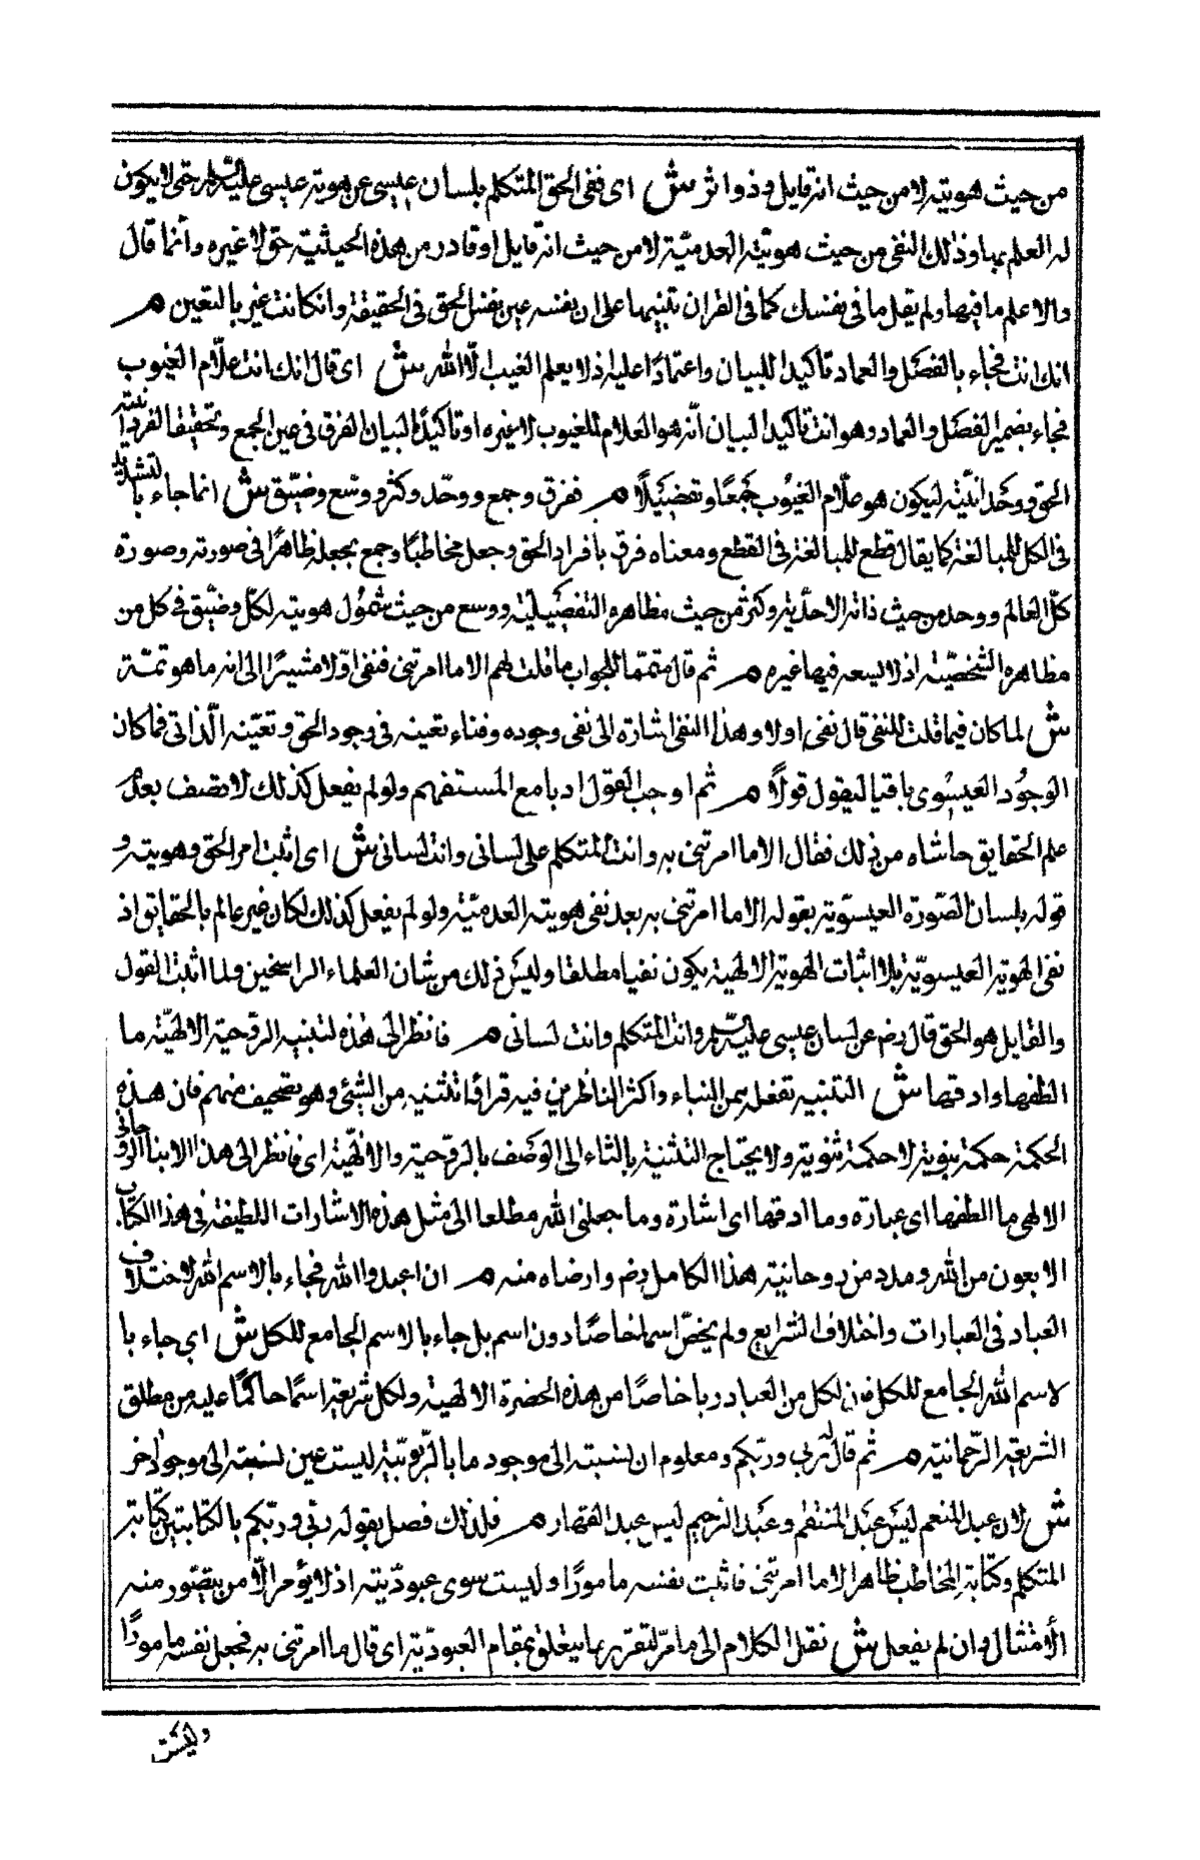 من حيث هويته لا من حيث انه قايل وذو اثر ش اى فنفى الحق المتكلم بلسان عيسى عن هوية عيسى عليه السلم حتى لا يكون
له العلم بها وذلك النفى من حيث هويته العدمية لا من حيث انه قايل او قادر من هذه الحيثية حق لا غيره وانما قال
ولا اعلم ما فيها ولم يقل ما فى نفسك كما فى القران تنبيها على ان نفسه عين نفس الحق فى الحقيقة وان كانت غيره بالتعين م
انك انت فجاء بالفصل والعماد تاكيدا للبيان واعتمادا عليه اذ لا يعلم الغيب الا الله ش اى قال انك انت علام الغيوب
فجاء بضمير الفصل والعماد وهو انت تاكيد البيان انه هو العلام للغيوب لا غيره او تاكيدا لبيان الفرق فى عين الجمع وتحقيقا لفردانية
الحق ووحدانيته ليكون هو علام الغيوب جمعا وتفصيلا م ففرق وجمع ووحد وكثر ووسع وضيق ش انما جاء بالتشديد
فى الكل للمبالغة كما يقال قطع للمبالغة فى القطع ومعناه فرق بافراد الحق وجعل مخاطبا وجمع بجعله ظاهرا فى صورته وصورة
كل العالم ووحد من حيث ذاته الاحدية وكثر من حيث مظاهره التفصيلية ووسع من حيث شمول هويته لكل وضيق فى كل من
مظاهره الشخصية اذ لا يسعه فيها غيره م ثم قال متمما للجواب ما قلت لهم الا ما امرتنى فنفى اولا مشيرا الى انه ما هو ثمة
ش لما كان فيما قلت للنفى قال نفى اولا وهذا النفى اشارة الى نفى وجوده وفناء تعينه فى وجود الحق وتعينه الذاتى فما كان
الوجود العيسوى باقيا ليقول قولا م ثم اوجب القول ادبا مع المستفهم ولو لم يفعل كذلك لاتصف بعدم
علم الحقايق حاشاه من ذلك فقال الا ما امرتنى به وانت المتكلم على لسانى وانت لسانى ش اى اثبت امر الحق وهويته و
قوله بلسان الصورة العيسوية بقوله الا ما امرتنى به بعد نفى هويته العدمية ولو لم يفعل كذلك لكان غير عالم بالحقايق اذ
نفى الهوية العيسوية بلا اثبات الهوية الالهية يكون نفيا مطلقا وليس ذلك من شان العلماء الراسخين ولما اثبت القول
والقايل هو الحق قال رض عن لسان عيسى عليه السلم وانت المتكلم وانت لسانى م فانظر الى هذه التنبيه الروحية الالهية ما
الطفها وادقها ش التنبيه تفعلة من النباء واكثر الناظرين فيه قراؤا تثنيه من الشئ وهو تصحيف منهم فان هذه
الحكمة حكمة نبوية لا حكمة ثنوية ولا يحتاج التثنية بالثاء الى الوصف بالروحية والالهية اى فانظر الى هذا الانباء الروحانى
الالهى ما الطفها اى عبارة وما ادقها اى اشارة وما جعلنى الله مطلعا الى مثل هذه الاشارات اللطيفة فى هذا الكتاب
الا بعون من الله ومدد من روحانية هذا الكامل رض وارضاه منه م ان اعبدوا الله فجاء بالاسم الله لاختلاف
العباد فى العبارات واختلاف الشرايع ولم يخص اسما خاصا دون اسم بل جاء بالاسم الجامع للكل ش اى جاء با
لاسم الله الجامع للكل فان لكل من العباد ربا خاصا من هذه الحضرة الالهية ولكل شريعة اسما حاكما عليه من مطلق
الشريعة الرحمانية م ثم قال له ربى وربكم ومعلوم ان نسبته الى موجود ما بالربوبية ليست عين نسبته الى موجود اخر
ش لان عبد المنعم ليس عبد المنتقم وعبد الرحيم ليس عبد القهار م فلذلك فصل بقوله ربى وربكم بالكنايتين كناية
المتكلم وكناية المخاطب ظاهر الا ما امرتنى فاثبت نفسه مامورا وليست سوى عبوديته اذ لا يؤمر الا من يتصور منه
الامتثال وان لم يفعل ش نقل الكلام الى ما مر لتقرير ما يتعلق بمقام العبودية اى قال ما امرتنى به فجعل نفسه مامورا
وليست